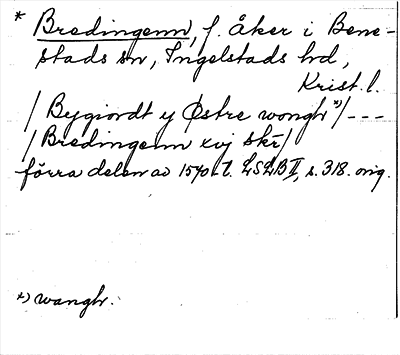 * Bredingenn, f. åker i Bene-
stads sn, Ingelstads hd,
Krist. l.
/ Bygiordt y Østre wongh *)/ ---
/ Bredingenn xvj skr̄/
förra delen av 1570-t. LSLB II, s. 318. orig.
*) wangh.